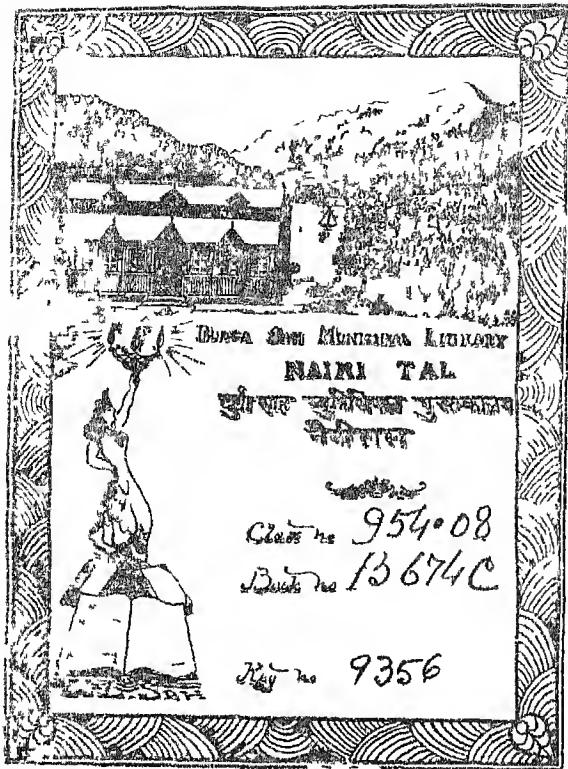 DURGA SAH MUNICIPAL LIBRARY
NAINI TAL
दुर्गासाह म्युनिसिपल पुस्तकालय
नैनीताल
Class no 954.08
Book no B674C
Reg no 9356